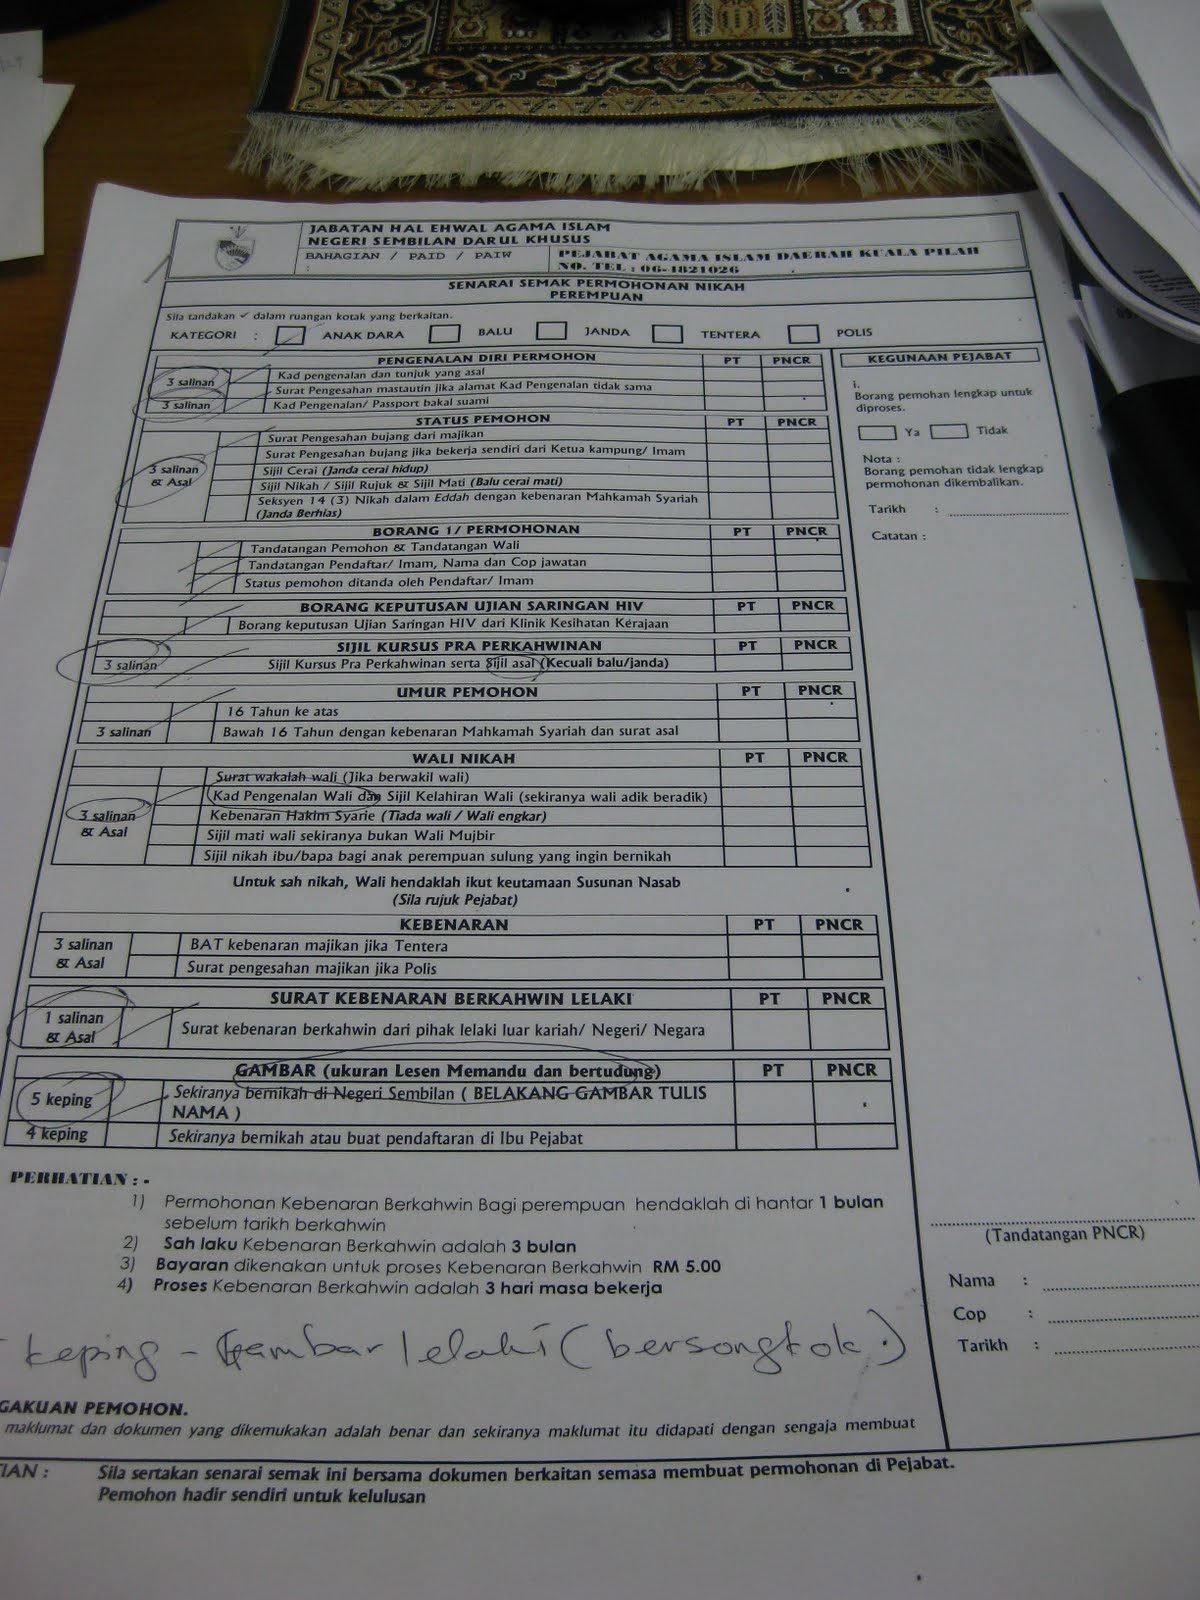 JABATAN HAL EHWAL AGAMA ISLAM
NEGERI SEMBILAN DARUL KHUSUS
BAHAGIAN / PAID / PAIW
:
PEJABAT AGAMA ISLAM DAERAH KUALA PILAH
NO. TEL : 06-4821026
SENARAI SEMAK PERMOHONAN NIKAH
PEREMPUAN
Sila tandakan ✓ dalam ruangan kotak yang berkaitan.
KATEGORI : ANAK DARA BALU JANDA TENTERA POLIS
PENGENALAN DIRI PERMOHON PT PNCR
3 salinan
Kad pengenalan dan tunjuk yang asal
Surat Pengesahan mastautin jika alamat Kad Pengenalan tidak sama
3 salinan Kad Pengenalan/ Passport bakal suami
STATUS PEMOHON PT PNCR
3 salinan
& Asal
Surat Pengesahan bujang dari majikan
Surat Pengesahan bujang jika bekerja sendiri dari Ketua kampung/ Imam
Sijil Cerai (Janda cerai hidup)
Sijil Nikah / Sijil Rujuk & Sijil Mati (Balu cerai mati)
Seksyen 14 (3) Nikah dalam Eddah dengan kebenaran Mahkamah Syariah
(Janda Berhias)
BORANG 1/ PERMOHONAN PT PNCR
Tandatangan Pemohon & Tandatangan Wali
Tandatangan Pendaftar/ Imam, Nama dan Cop jawatan
Status pemohon ditanda oleh Pendaftar/ Imam
BORANG KEPUTUSAN UJIAN SARINGAN HIV PT PNCR
Borang keputusan Ujian Saringan HIV dari Klinik Kesihatan Kerajaan
SIJIL KURSUS PRA PERKAHWINAN PT PNCR
3 salinan Sijil Kursus Pra Perkahwinan serta Sijil asal (Kecuali balu/janda)
UMUR PEMOHON PT PNCR
16 Tahun ke atas
3 salinan Bawah 16 Tahun dengan kebenaran Mahkamah Syariah dan surat asal
WALI NIKAH PT PNCR
3 salinan
& Asal
Surat wakalah wali (Jika berwakil wali)
Kad Pengenalan Wali dan Sijil Kelahiran Wali (sekiranya wali adik beradik)
Kebenaran Hakim Syarie (Tiada wali / Wali engkar)
Sijil mati wali sekiranya bukan Wali Mujbir
Sijil nikah ibu/bapa bagi anak perempuan sulung yang ingin bernikah
Untuk sah nikah, Wali hendaklah ikut keutamaan Susunan Nasab
(Sila rujuk Pejabat)
KEBENARAN PT PNCR
3 salinan
& Asal
BAT kebenaran majikan jika Tentera
Surat pengesahan majikan jika Polis
SURAT KEBENARAN BERKAHWIN LELAKI PT PNCR
1 salinan
& Asal
Surat kebenaran berkahwin dari pihak lelaki luar kariah/ Negeri/ Negara
GAMBAR (ukuran Lesen Memandu dan bertudung) PT PNCR
5 keping Sekiranya bernikah di Negeri Sembilan ( BELAKANG GAMBAR TULIS
NAMA )
4 keping Sekiranya bernikah atau buat pendaftaran di Ibu Pejabat
PERHATIAN : -
1) Permohonan Kebenaran Berkahwin Bagi perempuan hendaklah di hantar 1 bulan
sebelum tarikh berkahwin
2) Sah laku Kebenaran Berkahwin adalah 3 bulan
3) Bayaran dikenakan untuk proses Kebenaran Berkahwin RM 5.00
4) Proses Kebenaran Berkahwin adalah 3 hari masa bekerja
keping - Gambar lelaki (bersongkok.)
GAKUAN PEMOHON.
maklumat dan dokumen yang dikemukakan adalah benar dan sekiranya maklumat itu didapati dengan sengaja membuat
TIAN : Sila sertakan senarai semak ini bersama dokumen berkaitan semasa membuat permohonan di Pejabat.
Pemohon hadir sendiri untuk kelulusan
KEGUNAAN PEJABAT
i.
Borang pemohan lengkap untuk
diproses.
Ya Tidak
Nota :
Borang pemohan tidak lengkap
permohonan dikembalikan.
Tarikh :
Catatan :
(Tandatangan PNCR)
Nama :
Cop :
Tarikh :